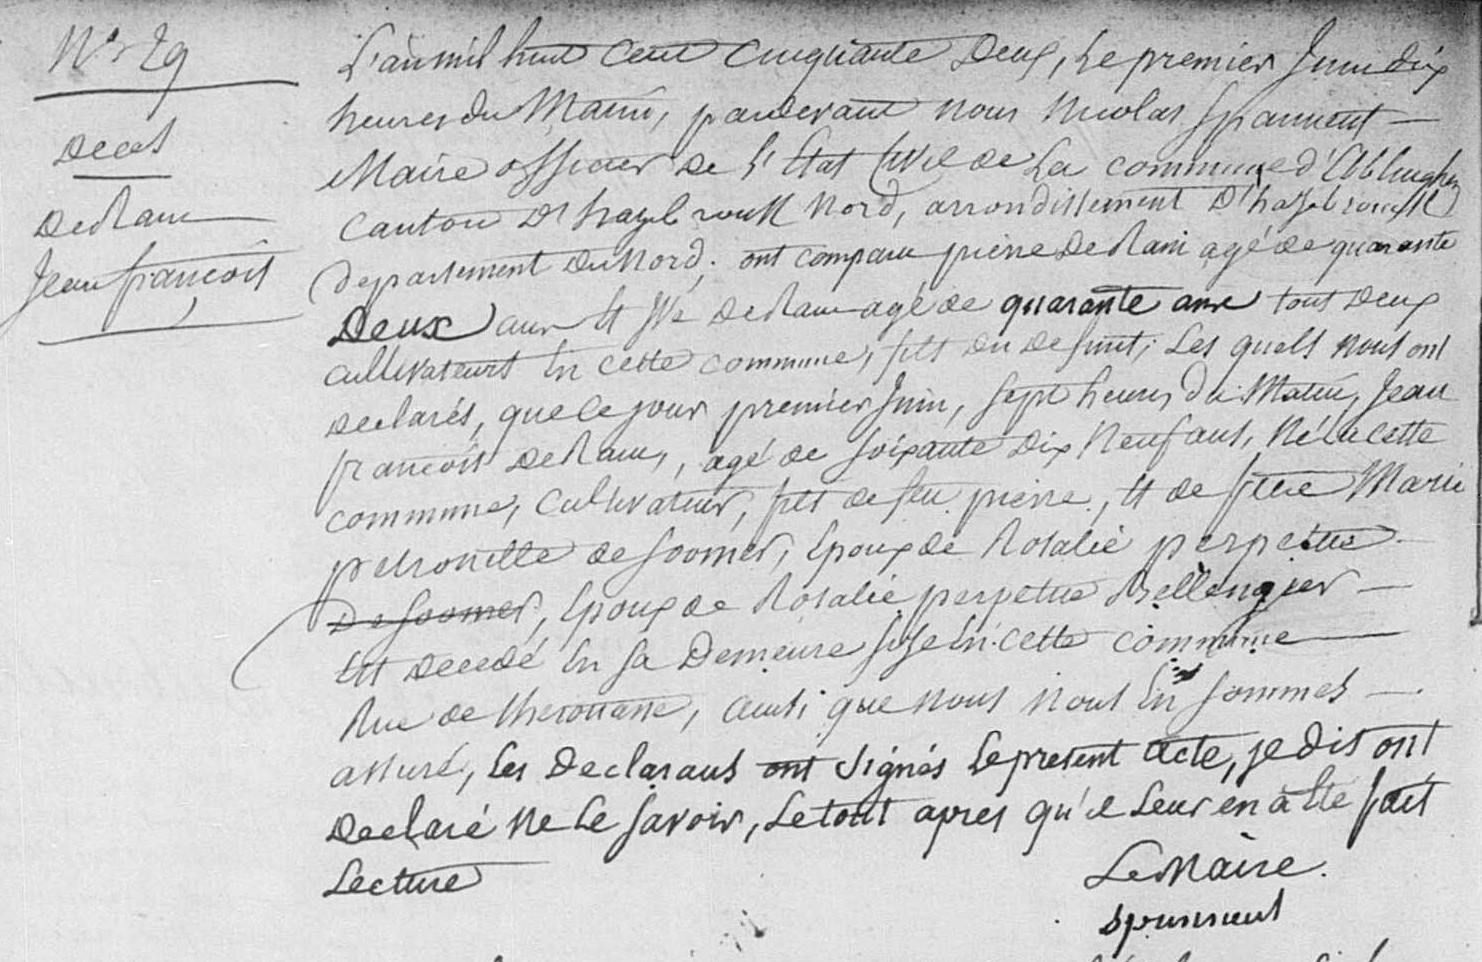 N° 29
Deces
De Ram
Jean françois
L'an mil huit cent cinquante Deux, Le premier Juin dix
heures du Matin, pardevant nous Nicolas Spannent
Maire officier De L'Etat Civil de La commune d'Ebblinghem
Canton D'hazebrouck Nord, arrondissement D'hazebrouck
Departement Du Nord, ont comparu pierre De Ram agé de quarante
Deux ans Et De Ram agé de quarante ans tout deux
cultivateurs En cette commune, fils du Defunt, Les quels nous ont
Declarés, que le jour premier Juin, sept heures du Matin, Jean
francois De Ram, agé de soixante Dix Neuf ans, Né En cette
commune, cultivateur, fils de feu pierre, Et de feue Marie
petronille de Soomer, Epoux de Rosalie perpetue
De Soomer, Epoux de Rosalie perpetue Bellengier
Est Decedé En sa Demeure sise En cette commune
Rue de therouane, ainsi que nous nous En sommes
assuré, Les Declarans ont signés Le present acte, je dis ont
Declaré Ne Le savoir, Le tout apres qu'il Leur en à Eté fait
Lecture
Le Maire
Spannent